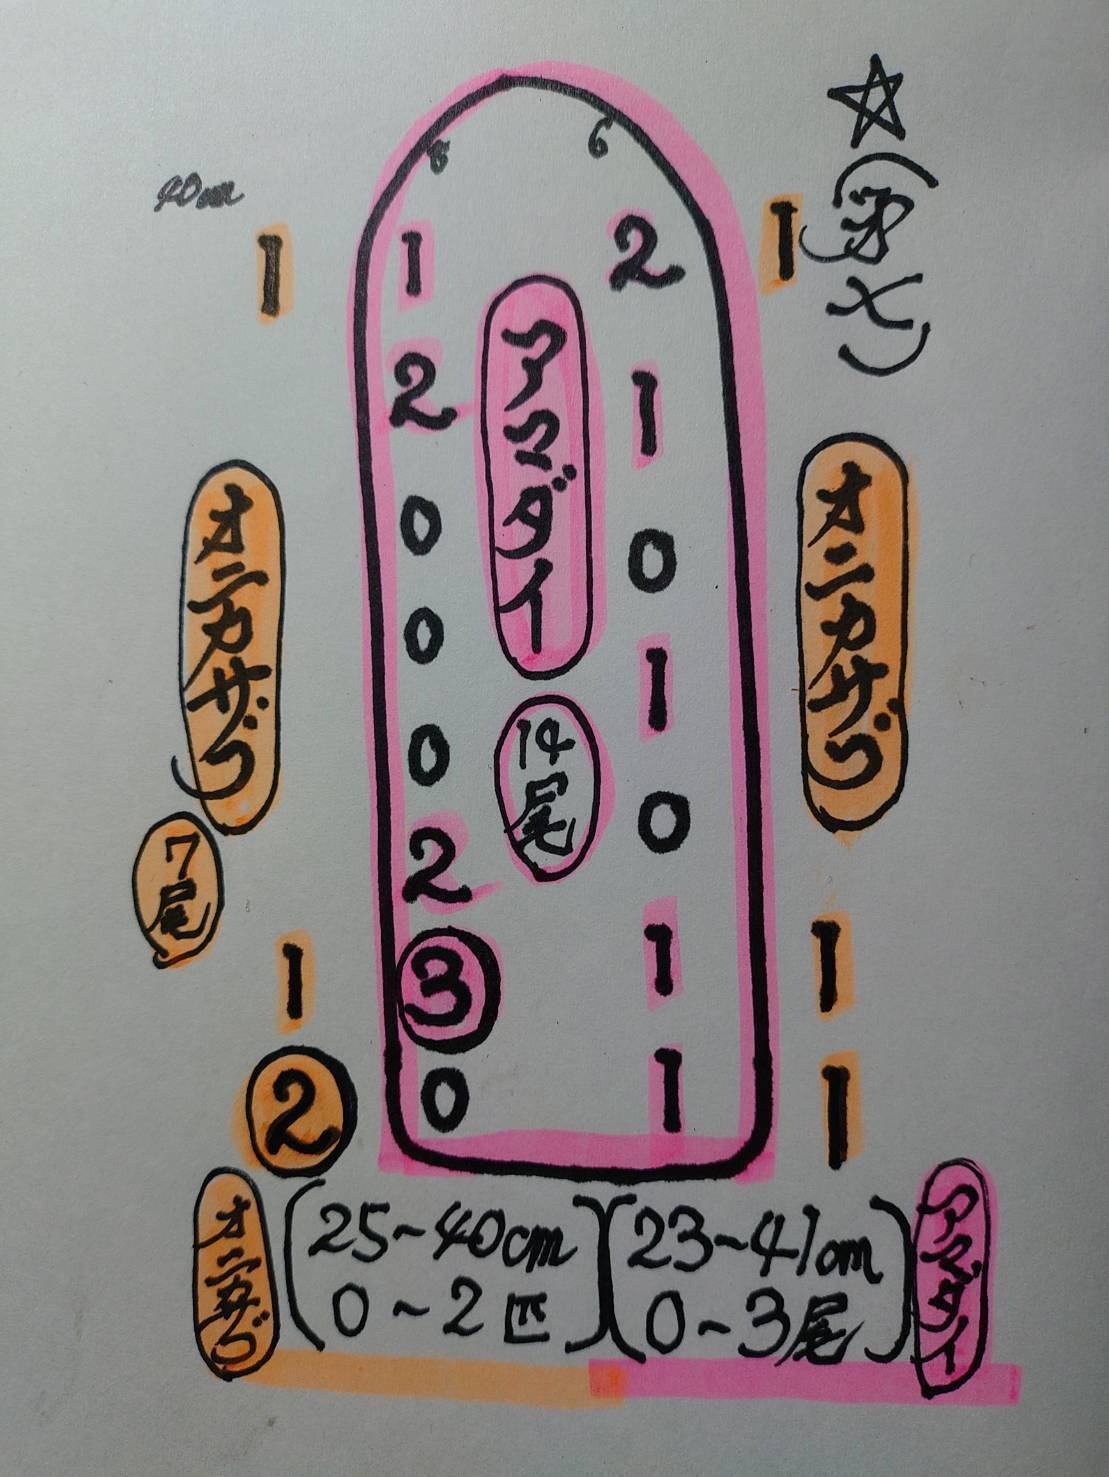 ☆
40cm
8 6
1 1 2 1
2 1
アマダイ
0 0
オニカサゴ
オニカサゴ
0 1
14尾
0 0
7尾
2
1 3 1 1
2 0 1 1
オニカサゴ
(25~40cm
0~2匹)
(23~41cm
0~3尾)
アマダイ